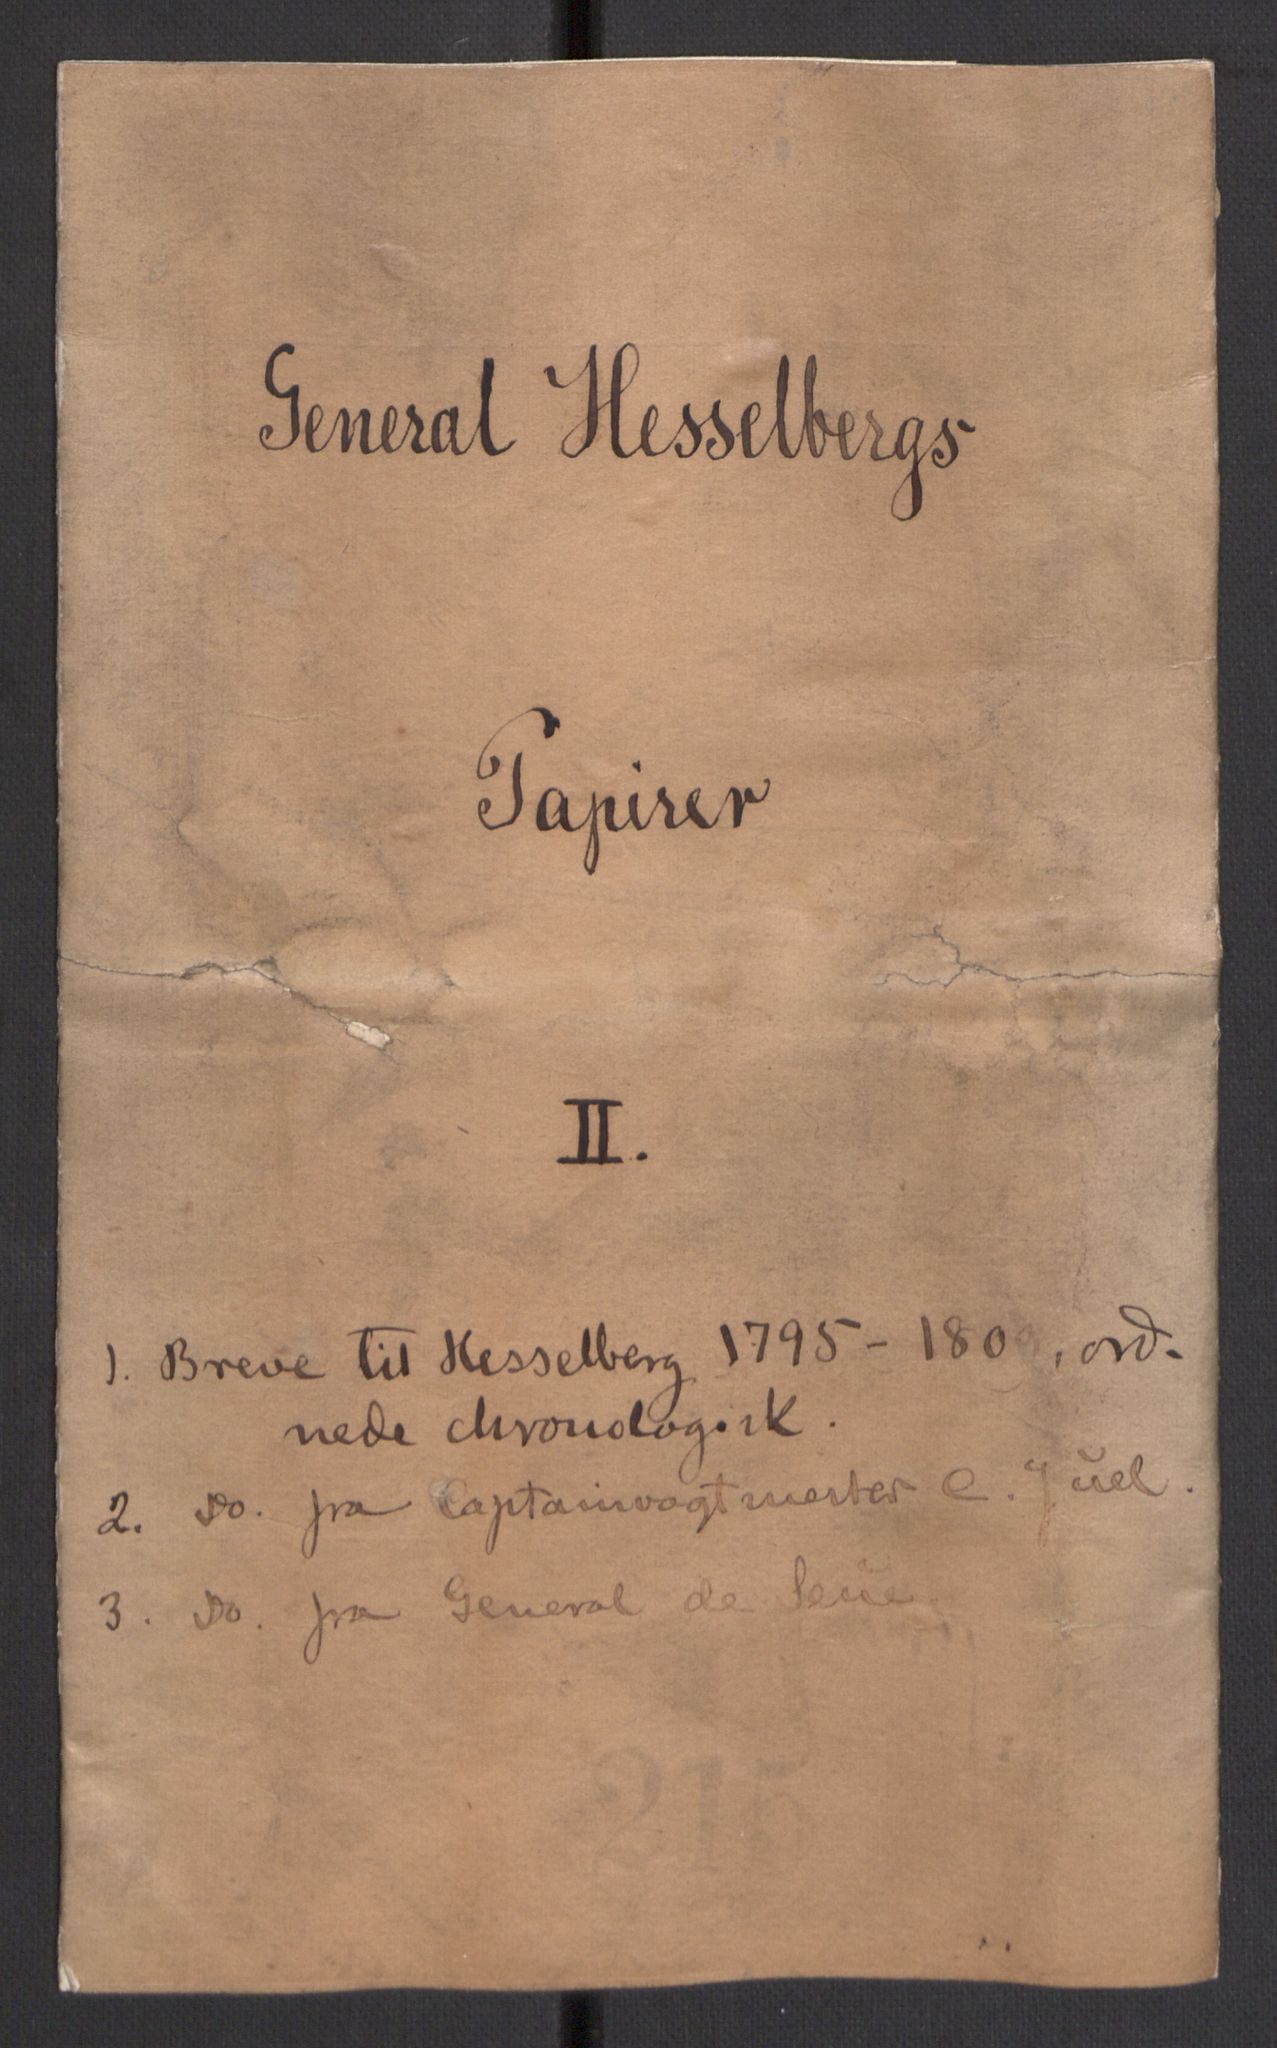 General Hesselbergs
Papirer
II.
1. Breve til Hesselberg 1795 - 180 , ord-
nede chronologisk.
2. Do. fra Captainvagtmester C. Juel.
3. Do. fra General de Seüe
215